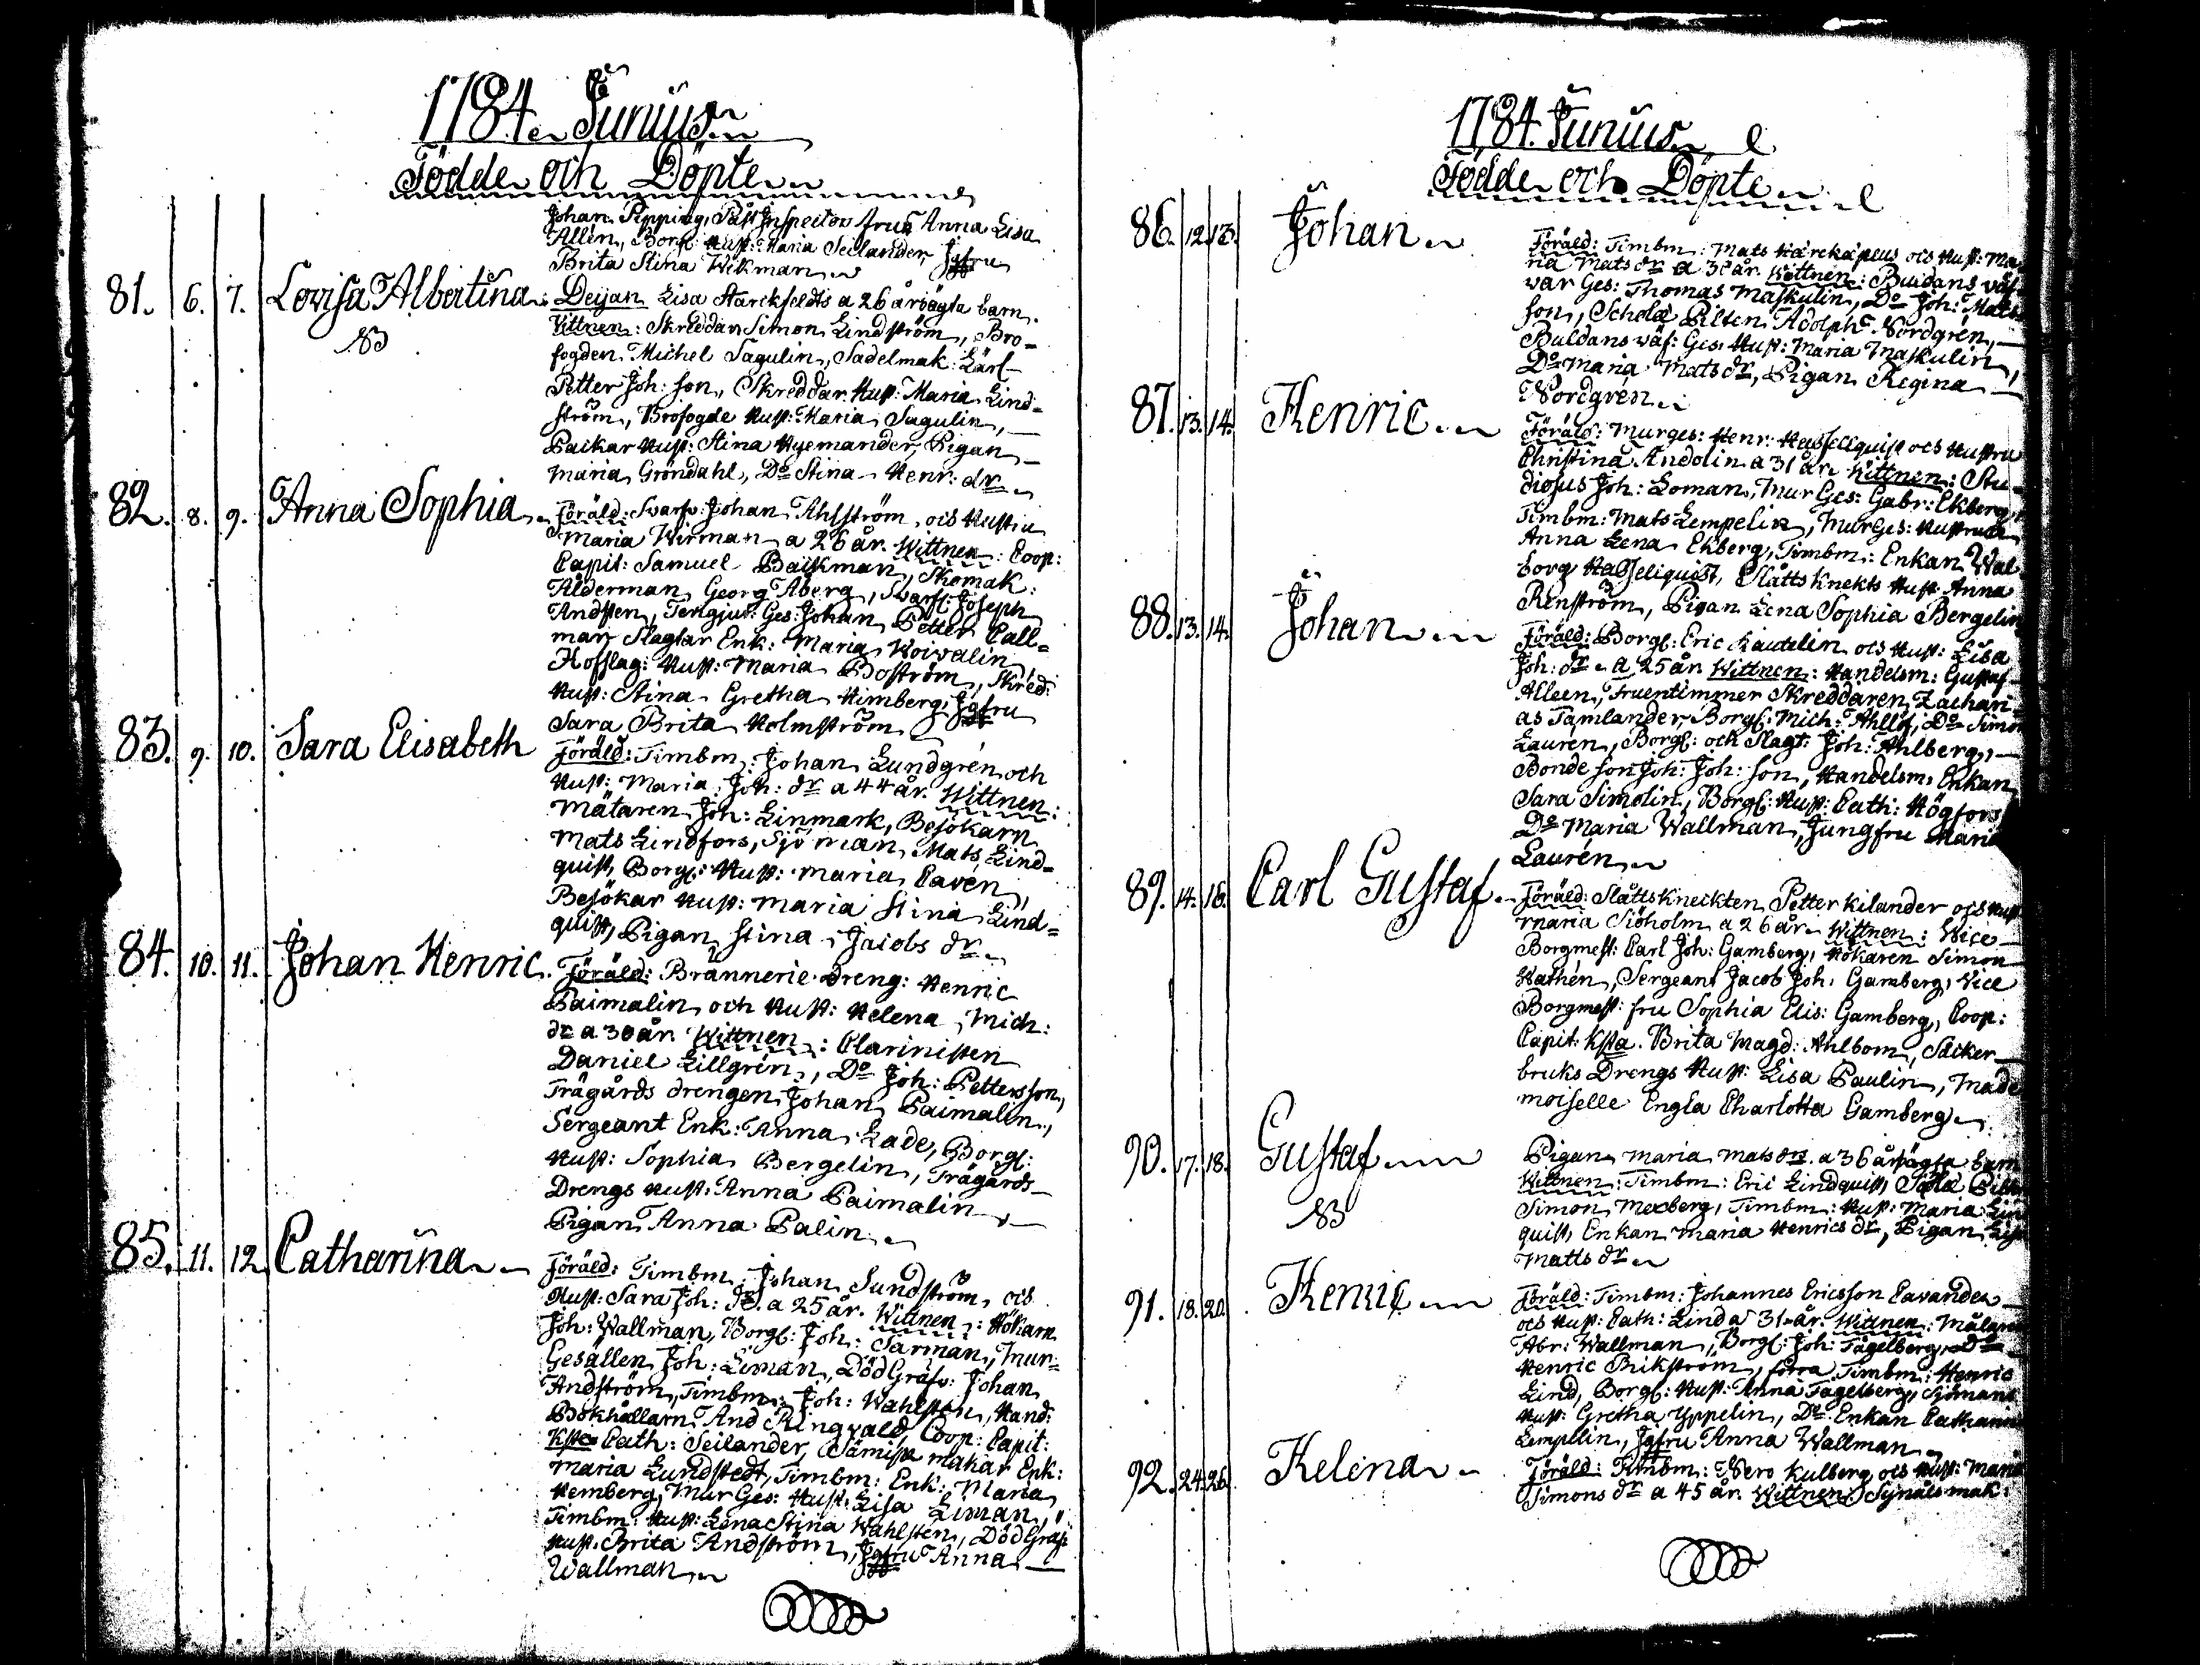 1784 Junius
Födde och Döpte
Johan Pipping, Påst Inspector fru Anna Lisa
Allén, Borgl: Hust: Maria Seilander, Jgfru
Brita Stina Wikman
81. 6. 7. Lovisa Albertina. Deijan Lisa Starckfeldts a 26 år oägta barn.
NB Vittnen: Skreddar Simon Lindström, Bro-
fogden Michel Sagulin, Sadelmak: Lärl
Petter Joh: Son, Skreddar Hust: Maria Lind=
ström, Brofogde Hust: Maria Sagulin,
Packar Hust: Stina Nyemander, Pigan
Maria Gröndahl, Do Stina Henr: dr
82. 8. 9. Anna Sophia. Föräld: Svarfv: Johan Ahlström, och Hustru
Maria Wirman a 26 år. Wittnen: Coop:
Capit: Samuel Bäckman, Skomak:
Ålderman Georg Åberg, Svarf: Joseph
Andsten, Tengjut: Ges: Johan Petter Call=
man Slagtar Enk: Maria Koivalin
Hofslag: Hust: Maria Boström, Skred:
Hust: Stina Gretha Himberg, Jgfru
Sara Brita Holmström
83. 9. 10. Sara Elisabeth Föräld: Timbm: Johan Lundgrén och
Hust: Maria Joh: dr a 44 år. Wittnen:
Mätaren Joh: Linmark, Besökarn
Mats Lindfors, Sjöman Mats Lind=
quist, Borgl: Hust: Maria Cavén
Besökar Hust: Maria Stina Lind=
quist, Pigan Stina Jacobs dr
84. 10. 11. Johan Henric. Föräld: Brännerie dreng: Henric
Paimalin och Hust: Helena Mich:
dr a 30 år. Wittnen: Clarinisten
Daniel Lillgrén, Do Joh: Pettersson,
Trägårds drengen Johan Paimalin,
Sergeant Enk: Anna Lade, Borgl:
Hust: Sophia Bergelin, Trägårds
Drengs Hust: Anna Paimalin,
Pigan Anna Palin
85. 11. 12 Catharina Föräld: Timbm: Johan Sundström, och
Hust: Sara Joh: dr. a 25 år. Wittnen: Hökarn
Joh: Wallman, Borgl: Joh: Sarman, Mur=
Gesällen Joh: Liman, DödGräfv: Johan
Andström, Timbm: Joh: Wahlsten, Hand:
Bokhållarn And Ringvald, Coop: Capit:
Ksta Cath: Seilander, Sämisk makar Enk:
Maria Lundstedt, Timbm: Enk: Maria
Hemberg, Mur Ges: Hust: Lisa Liman,
Timbm: Hust: Lena Stina Wahlsten, DödGräf:
Hust: Brita Andström, Jgfru Anna
Wallman
1784. Junius
Födde och Döpte
86. 12 13. Johan Föräld: Timbm: Mats Härckäpeus och Hust: Ma
ria Mats dr a 30 år. Wittnen: Buldans väf
var Ges: Thomas Maskulin, Do Joh: Mats
son, Schola Pilten Adolph Nordgrén,
Buldans väf: Ges: Hust: Maria Maskulin,
Do Maria Mats dr, Pigan Regina
Nordgrén
87. 13. 14. Henric Föräld: Murges: Henr: Hassellquist och Hustru
Christina Andolin a 31 år. Wittnen: Stu-
diosus Joh: Loman, Mur Ges: Gabr: Ekberg,
Timbm: Mats Lempelin, Mur Ges: Hustrun
Anna Lena Ekberg, Timbm: Enkan Wal
borg Hasseliquist, Slåtts Knekts Hust Anna
Renström, Pigan Lena Sophia Bergelin
88. 13. 14. Johan Föräld: Borgl: Eric Kautelin och Hust: Lisa
Joh: dr a 25 år. Wittnen: Handelsm: Gustaf
Alleen, Fruentimmer Skreddaren Zachari-
as Tamlander, Borgl: Mich: Ahllöf, Do Simon
Laurén, Borgl: och Slagt: Joh: Ahlberg,
Bonde son Joh: Joh: son, Handelsm: Enkan
Sara Simolin, Borgl: Hust: Cath: Högfors
Do Maria Wallman, Jungfru Maria
Laurén
89. 14. 16. Carl Gustaf. Föräld: Slåtts kneckten Petter Kilander och Hust
Maria Siöholm a 26 år. Wittnen: Vice
Borgmest: Carl Joh: Gamberg, Hökaren Simon
Wathén, Sergeant Jacob Joh: Gamberg, Vice
Borgmest: fru Sophia Elis: Gamberg, Coop:
Capit: Ksta. Brita Magd: Ahlbom, Säcker
bruks Drengs Hust: Lisa Paulin, Made
moiselle Engla Charlotta Gamberg
90. 17. 18. Gustaf Pigan Maria Mats dr. a 36 år oägta barn
NB Wittnen: Timbm: Eric Lindquist,
Simon Mexberg, Timbm: Hust: Maria Lin
quist, Enkan Maria Henrics dr, Pigan Lisa
Matts dr
91. 18. 20. Henric Föräld: Timbm: Johannes Ericsson Cavander
och Hust: Cath: Lind a 31 år. Wittnen: Målaren
Abr: Wallman, Borgl: Joh: Fagelberg, Do
Henric Brikström, förra Timbm: Henric
Lind, Borgl: Hust: Anna Fagelberg, Sjömans
Hust: Gretha Yppelin, Do Enkan Catharina
Lempelin, Jgfru Anna Wallman
92. 24. 26. Helena Föräld: Timbm: Nero Kulberg och Hust: Maria
Simons dr a 45 år. Wittnen: Synåls mak: